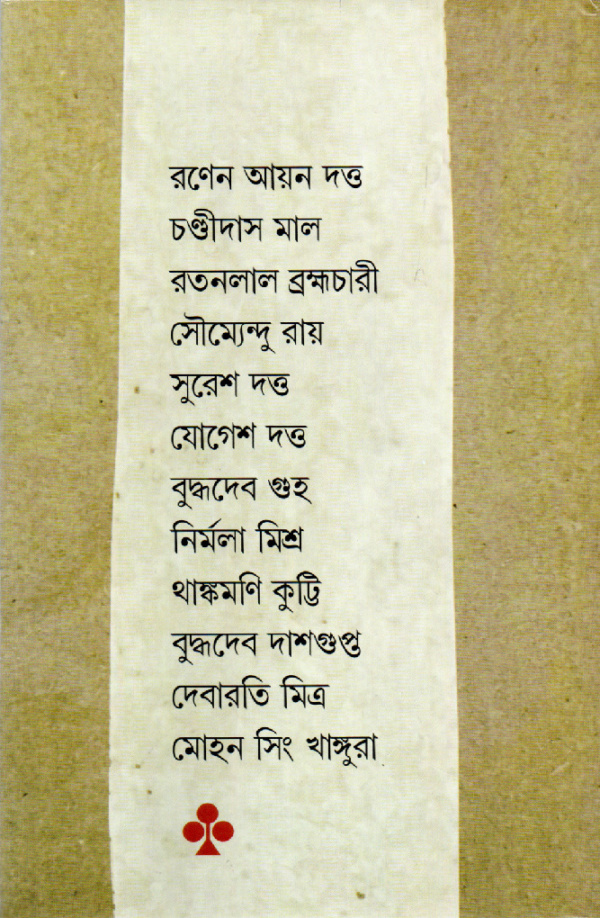 রণেন আয়ন দত্ত
চণ্ডীদাস মাল
রতনলাল ব্রহ্মচারী
সৌম্যেন্দু রায়
সুরেশ দত্ত
যোগেশ দত্ত
বুদ্ধদেব গুহ
নির্মলা মিশ্র
থাঙ্কমণি কুট্টি
বুদ্ধদেব দাশগুপ্ত
দেবারতি মিত্র
মোহন সিং খাঙ্গুরা